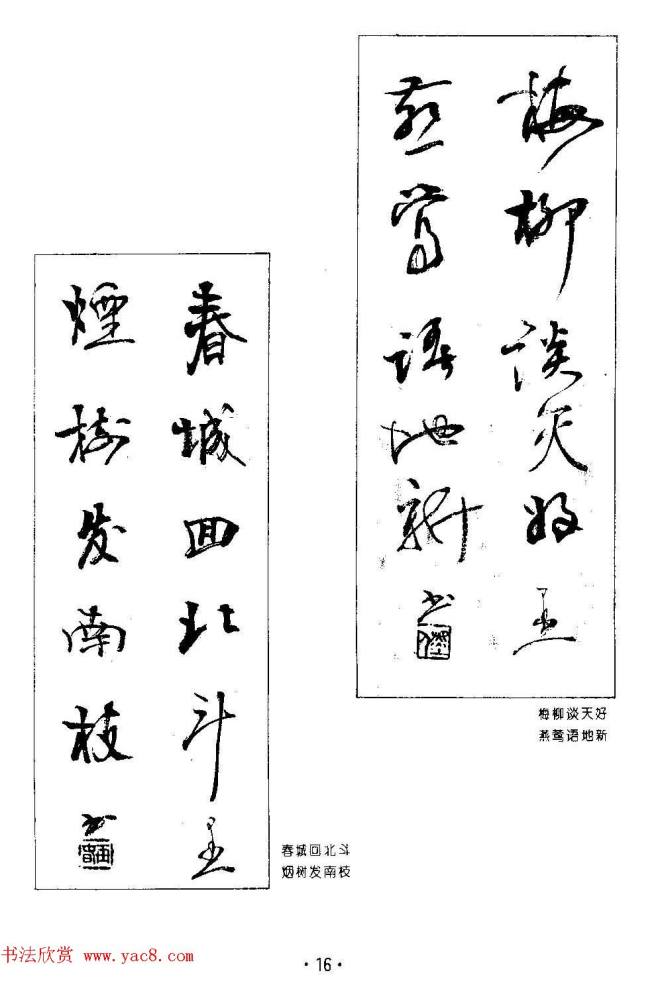 梅柳谈天好
燕莺语地新
梅柳谈天好
燕莺语地新
春城回北斗
煙树发南枝
春城回北斗
烟树发南枝
书法欣赏 www.yac8.com
·16·